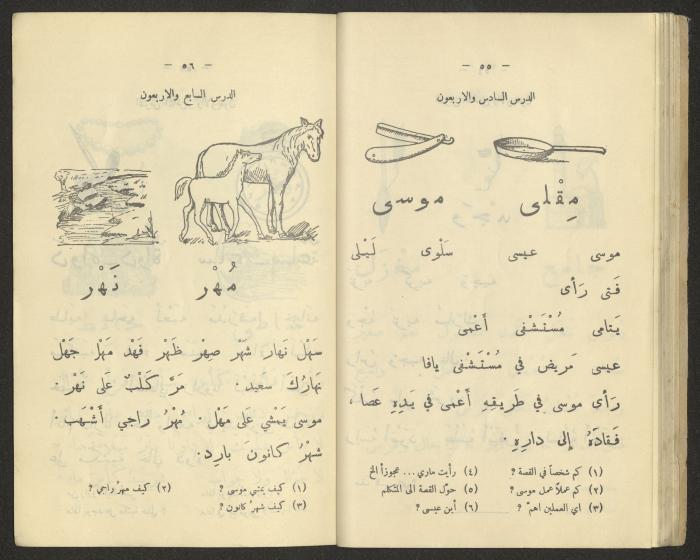 - ٥٥ -
الدرس السادس والاربعون
مِقْلى موسى
موسى عيسى سَلْوى لَيْلى
فَتى رَأى
يَتامى مُسْتَشْفى أَعْمى
عيسى مَريض في مُسْتَشْفى يافا
رَأى موسى في طَريقِهِ أَعْمى في يَدِهِ عَصا ،
فَقادَهُ إِلى دارِهِ .
(١) كم شخصاً في القصة ؟ (٤) رأيت ماري ... عجوزاً الخ
(٢) كم عملاً عمل موسى ؟ (٥) حوّل القصة الى المتكلم
(٣) اي العملين اهمّ ؟ (٦) أين عيسى ؟
- ٥٦ -
الدرس السابع والاربعون
مُهْر نَهْر
سَهْل نَهار شَهْر صِهْر ظَهْر فَهْد مَهْل جَهْل
نَهارُكَ سَعيد . مَرَّ كَلْبٌ عَلى نَهْر .
موسى يَمْشي عَلى مَهْل . مُهْرُ راجي أَشْهَب .
شَهْرُ كانونَ بارِد .
(١) كيف يمشي موسى ؟ (٢) كيف مهرُ راجي ؟
(٣) كيف شهرُ كانون ؟